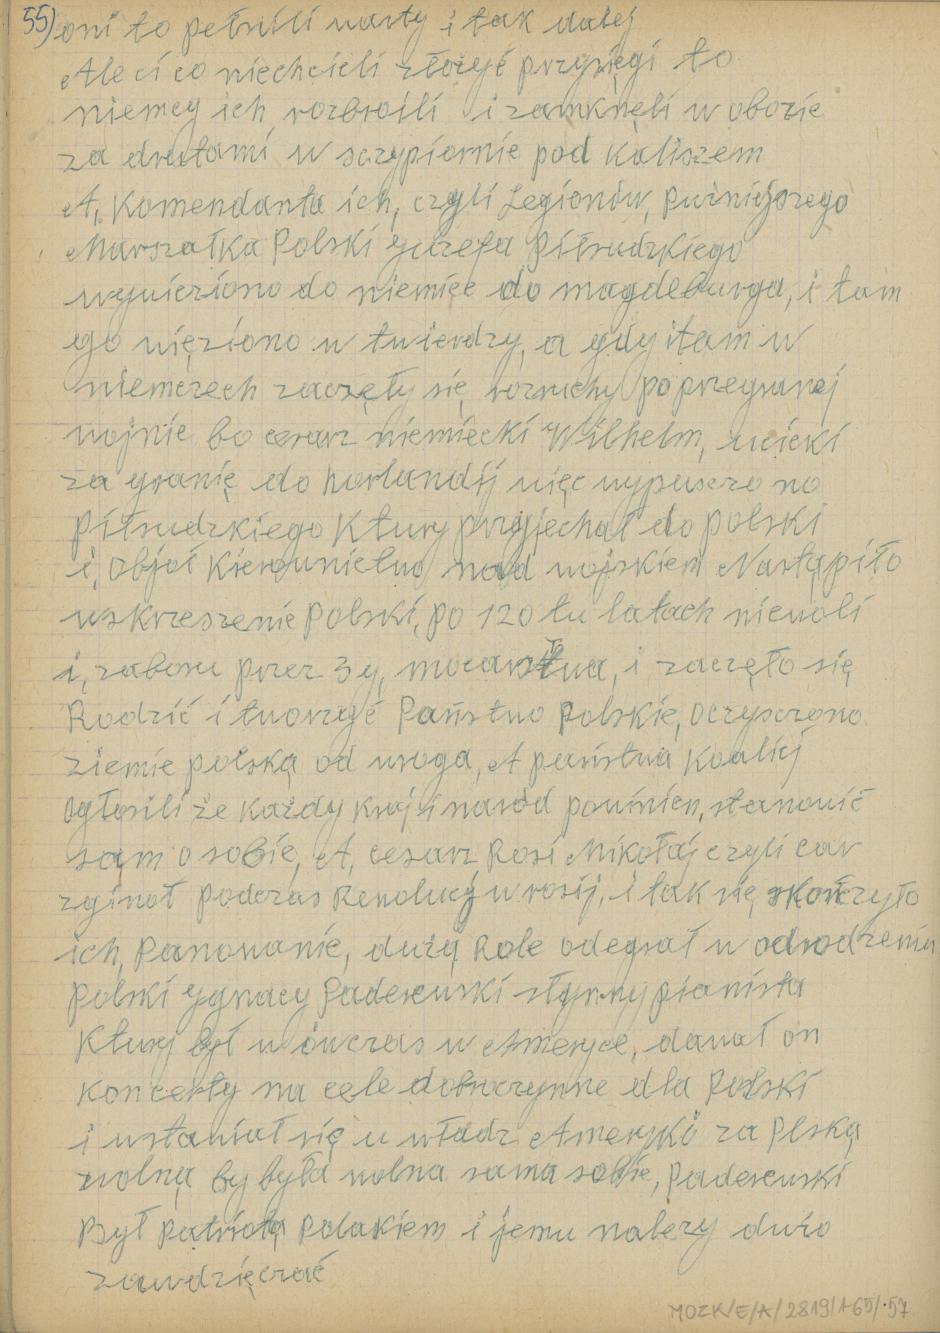 55) oni to pełnili warty i tak dalej
Ale ci co niechcieli złożyć przysięgi to
niemcy ich rozbroili i zamknęli w obozie
za drutami w sczypiornie pod Kaliszem
A, Komendanta ich, czyli Legionów, puzniejszego
Marszałka Polski Juzefa Piłsudzkiego
wywieziono do niemiec do magdeburga, i tam
go więziono w twierdzy, a gdy i tam w
niemczech zaczęły się rozruchy po przegranej
wojnie bo cesarz niemiecki Wilhelm, uciekł
za granię do horlandij więc wypusczono
Piłsudzkiego Ktury przyjechał do polski
i, objoł Kierownictwo nad wojskiem Nastąpiło
wskrzeszenie Polski, po 120 tu latach niewoli
i, zaboru przez 3 y, mocarstwa, i zaczęło się
Rodzić i tworzyć Państwo Polskie, oczysczono
ziemie polską od wroga, A państwa Koalicj
ogłosili że każdy kraj i naród powinien, stanowić
sam o sobie, A, cesarz Rosi Mikołaj czyli car
zginoł podczas Rewolucj w rosij, i tak się skończyło
ich, panowanie, dużą Role odegrał w odrodzeniu
Polski ygnacy Paderewski słynny pianista
Ktury był w ówczas w Ameryce, dawał on
Koncerty na cele dobroczynne dla Polski
i wstawiał się u władz Ameryki za Plską
wolną by była wolna sama sobie, Paderewski
Był patriotą Polakiem i jemu nalezy dużo
zawdzięczać
MOZK/E/A/2819/1-65/.57